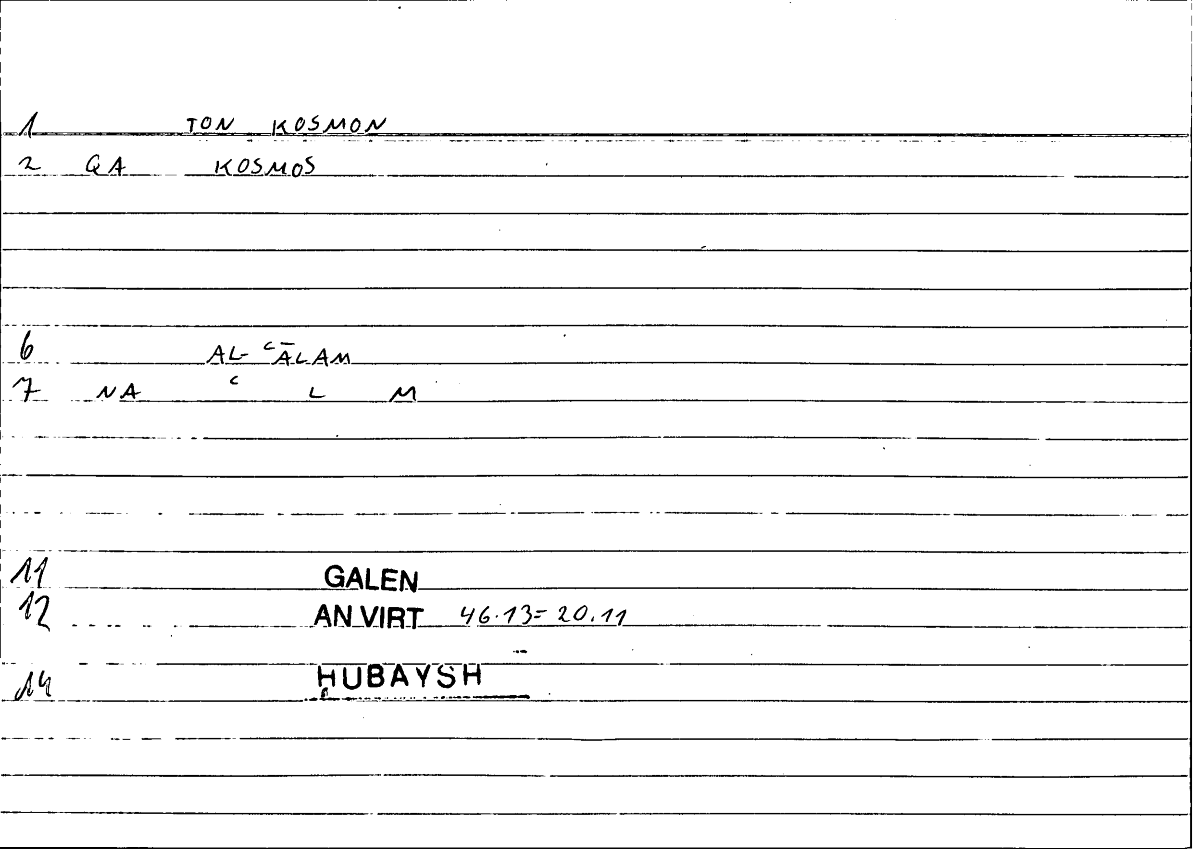 1 TON KOSMON
2 QA KOSMOS
6 AL-ʿĀLAM
7 NA ʿ L M
11 GALEN
12 AN VIRT 46.13=20.11
14 ḤUBAYSH